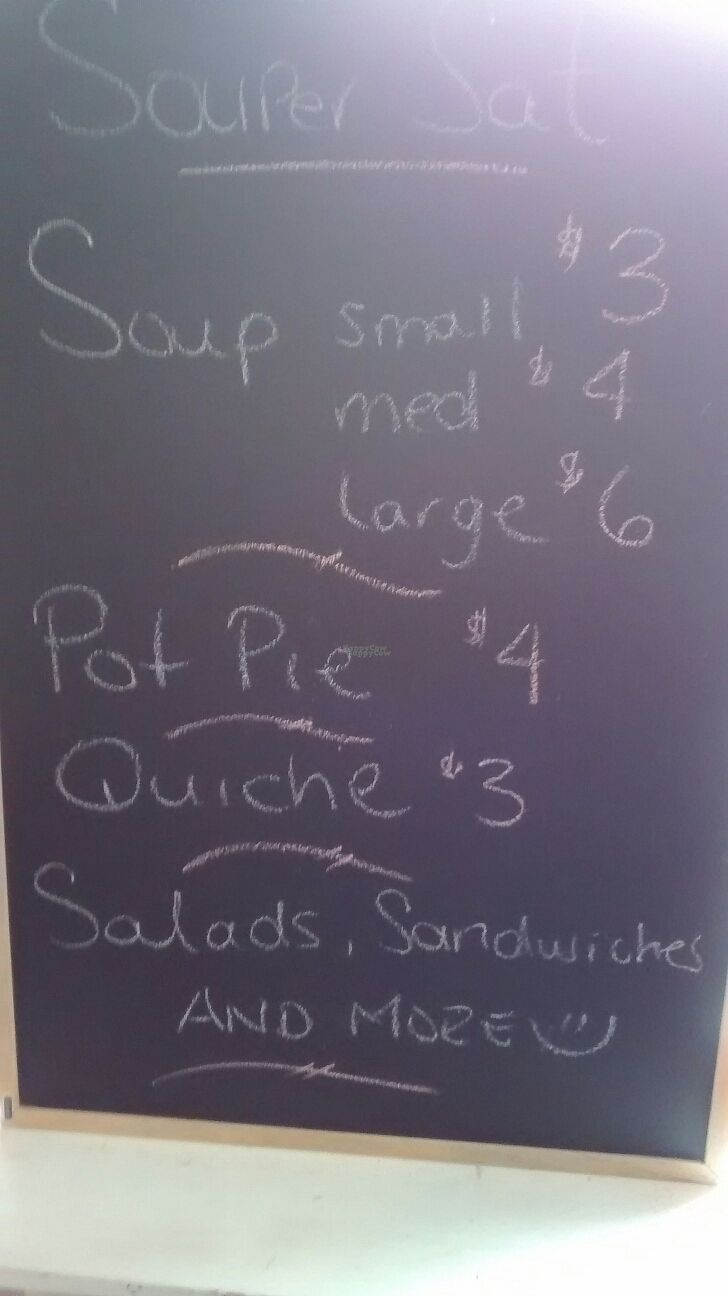 Souper Sat
Soup small $3
med $4
large $6
Pot Pie $4
HappyCow
HappyCow
Quiche $3
Salads, Sandwiches
AND MORE